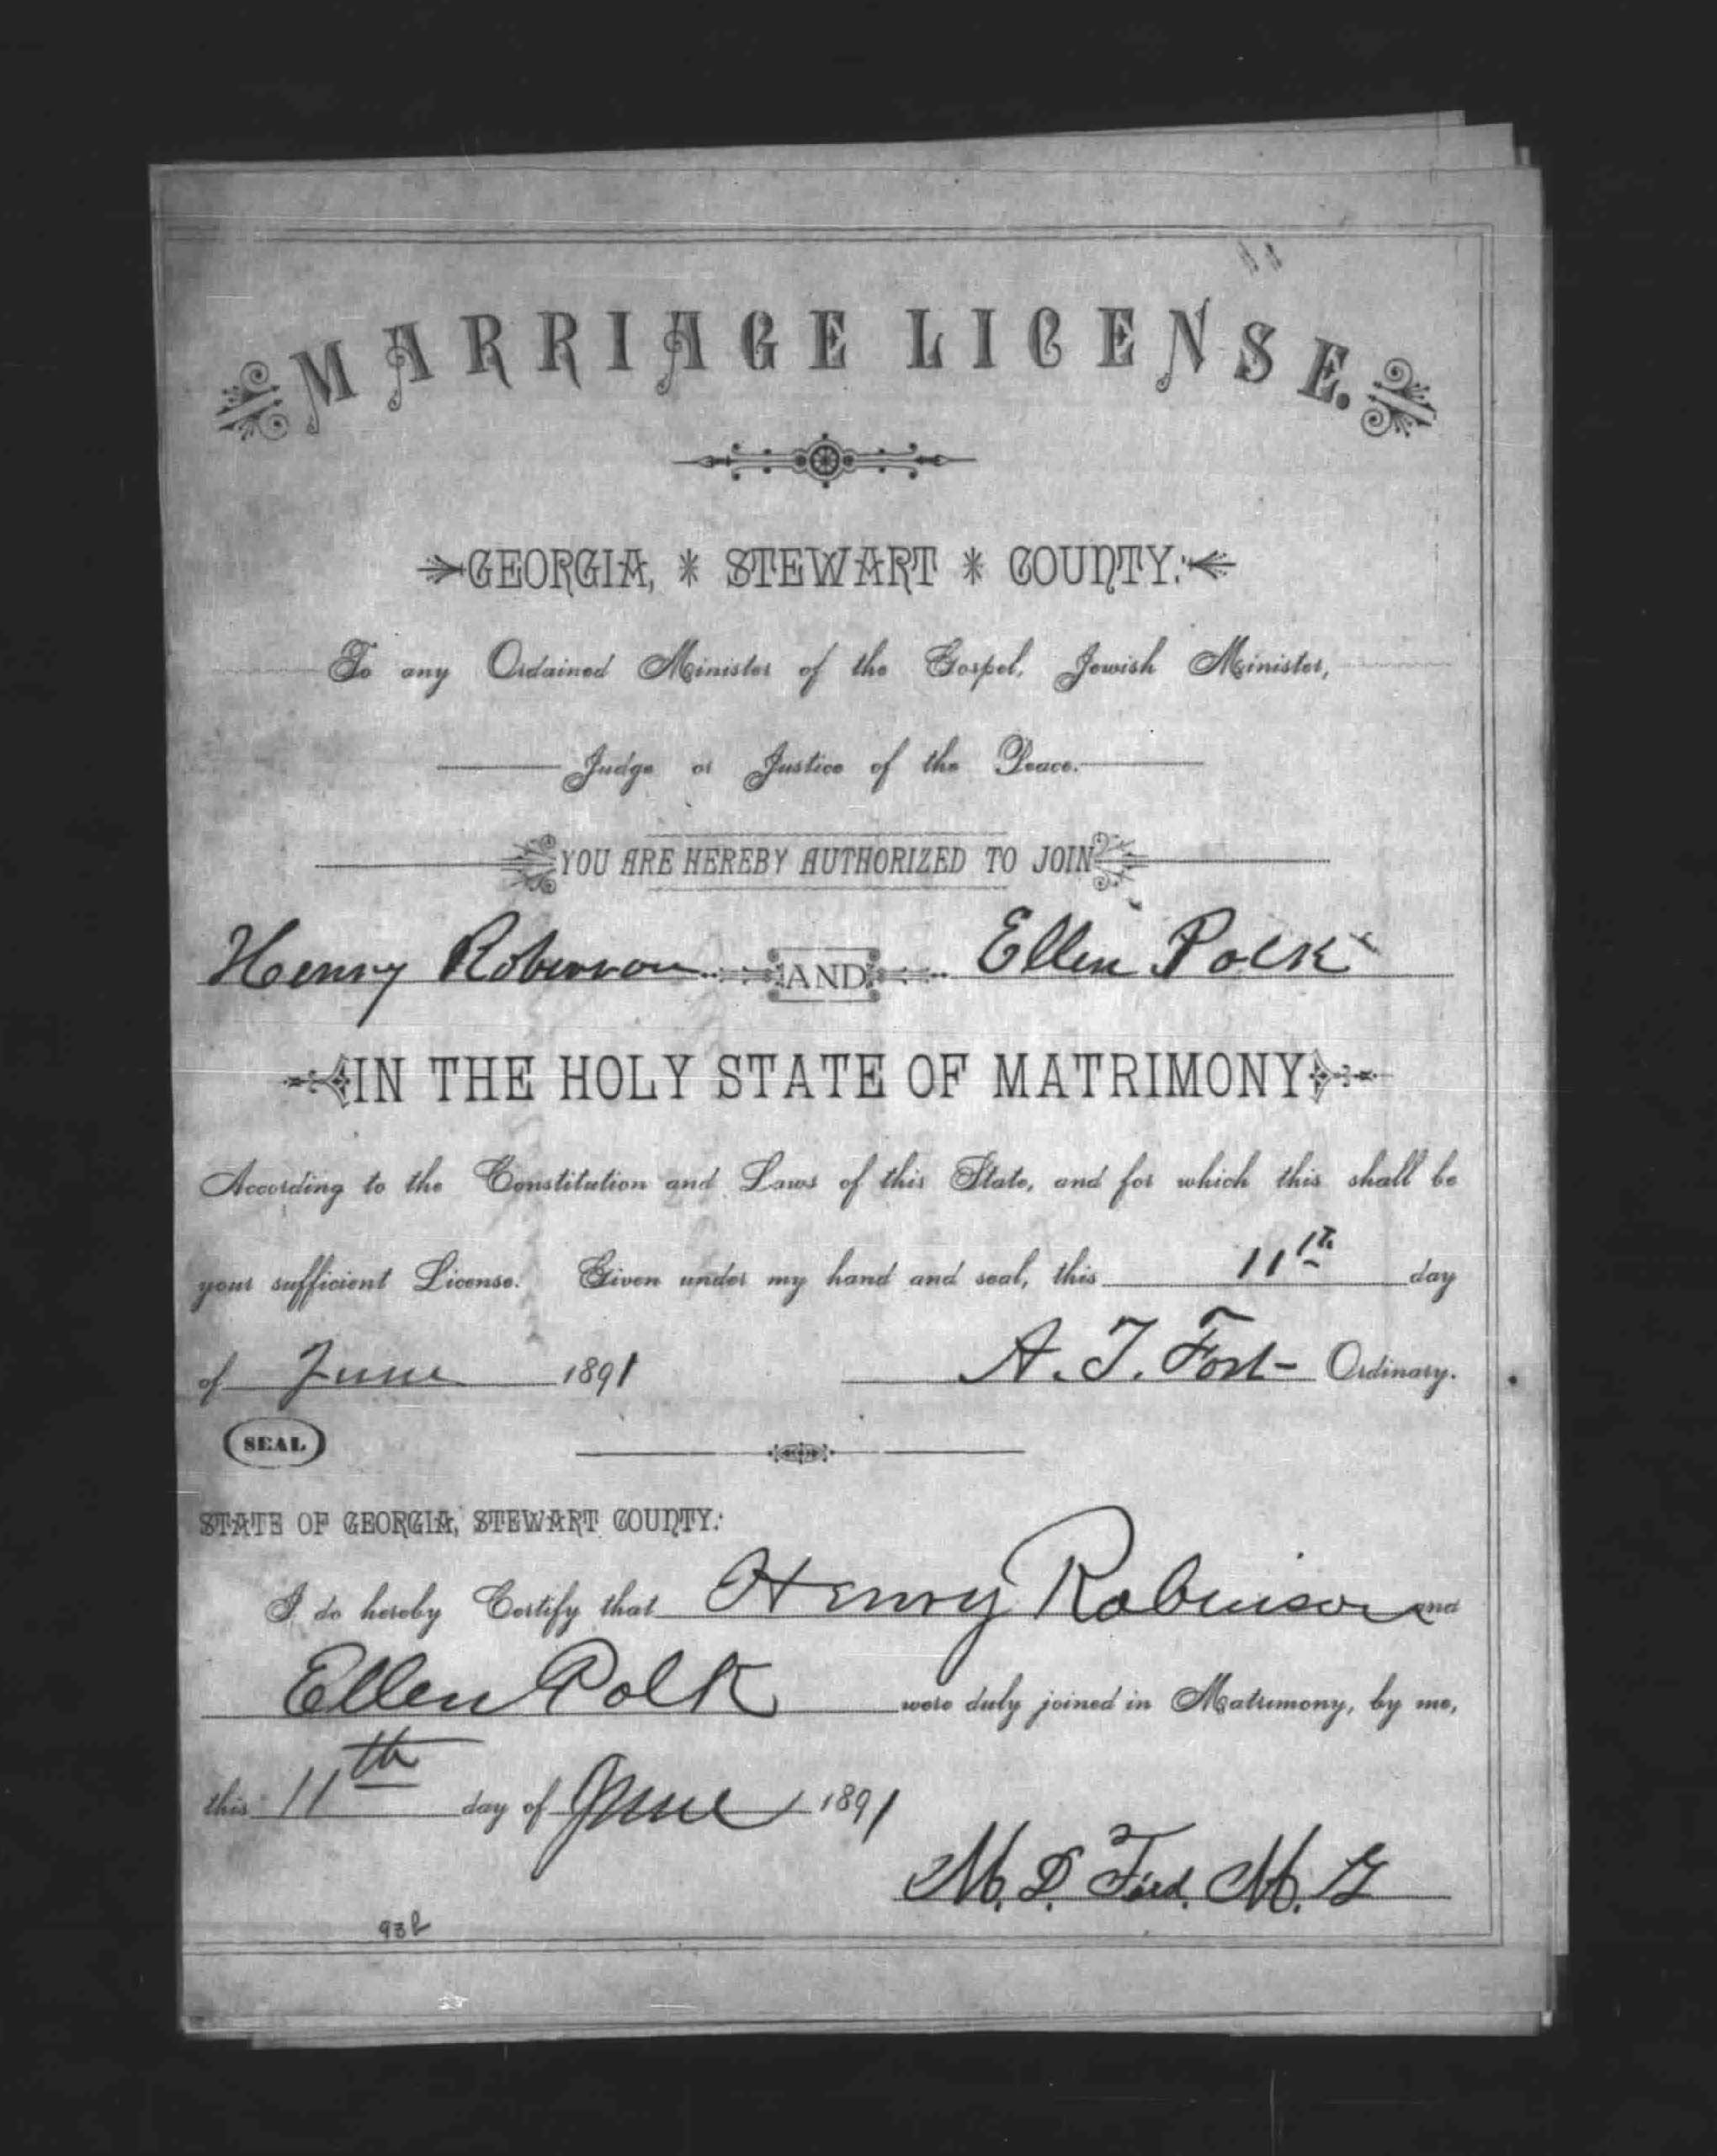 MARRIAGE LICENSE.
GEORGIA, * STEWART * COUNTY:
To any Ordained Minister of the Gospel, Jewish Minister,
Judge or Justice of the Peace.
YOU ARE HEREBY AUTHORIZED TO JOIN
Henry Roberson AND Ellen Polk
IN THE HOLY STATE OF MATRIMONY
According to the Constitution and Laws of this State, and for which this shall be
your sufficient License. Given under my hand and seal, this 11th day
of June 1891 A. T. Fort Ordinary.
SEAL
STATE OF GEORGIA, STEWART COUNTY:
I do hereby Certify that Henry Robinson and
Ellen Polk were duly joined in Matrimony, by me,
this 11th day of June 1891
M. D. Ford. M. G